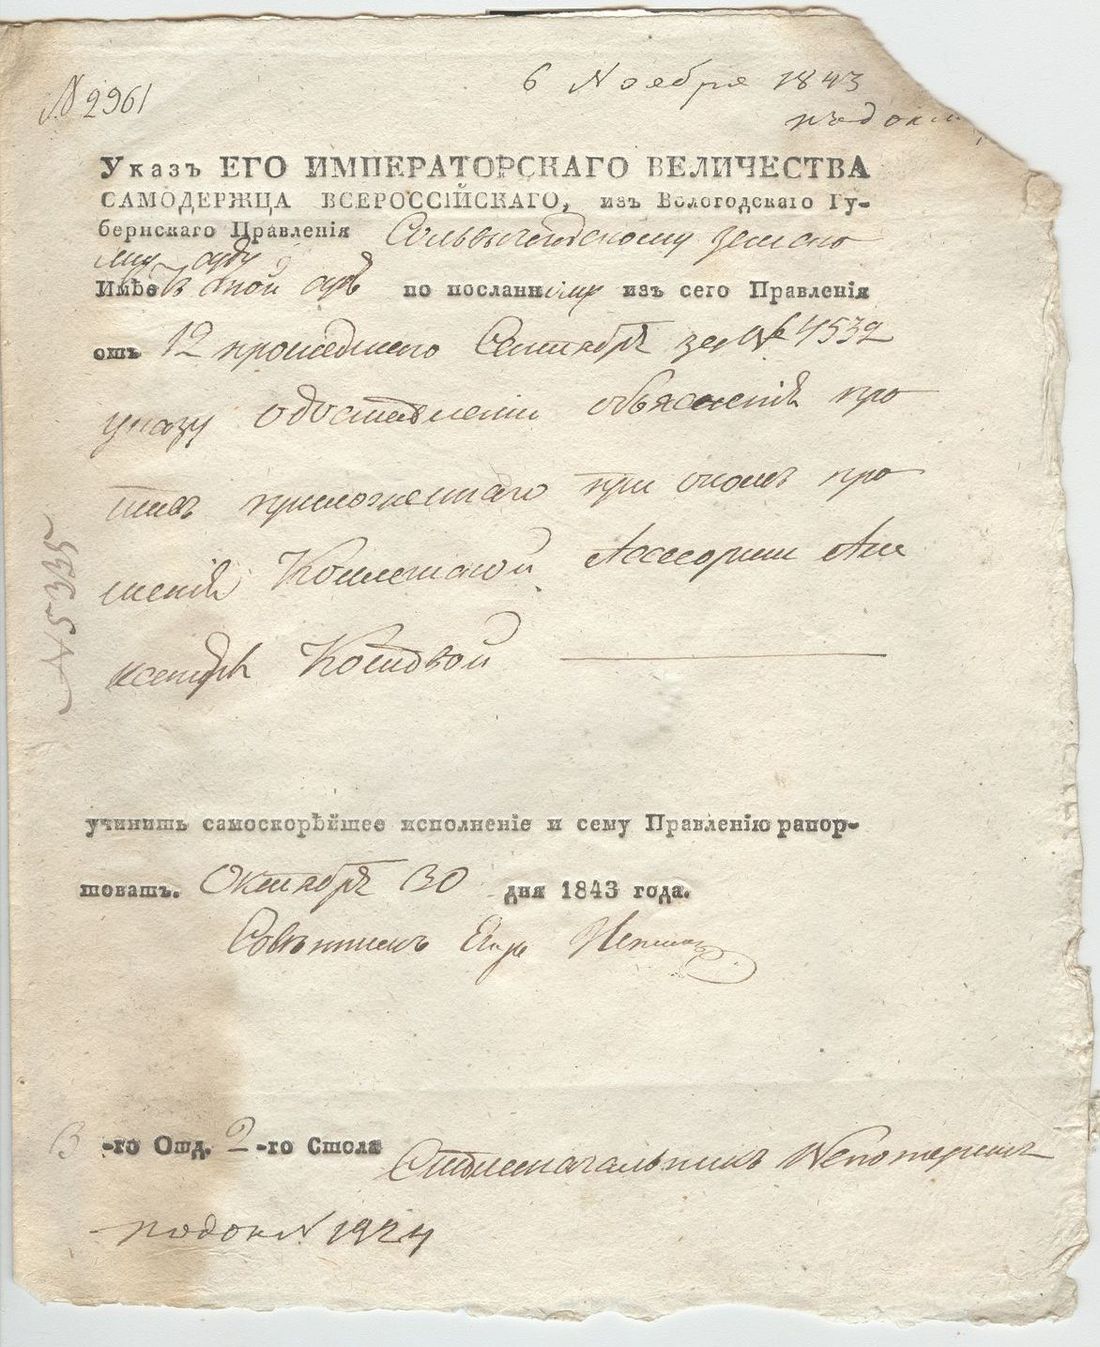 № 2961
6 Ноября 1843
Указъ ЕГО ИМПЕРАТОРСКАГО ВЕЛИЧЕСТВА
САМОДЕРЖЦА ВСЕРОССІЙСКАГО, изъ Вологодскаго Гу-
бернскаго Правленія Сольвычегодскому земско
му суду
Имѣе по посланному изъ сего Правленія
отъ 12 прошедшаго Сентября за № 4532
указу о доставленіи объясненія про
тивъ приложеннаго при ономъ про
шенія Коллежской Ассесорши Але
ксандры
№ 5335
учинить самоскорѣйшее исполненіе и сему Правленію рапор-
товать. Октября 30 дня 1843 года.
Совѣтникъ
3 -го Отд. 2 -го Стола Столоначальникъ
1924